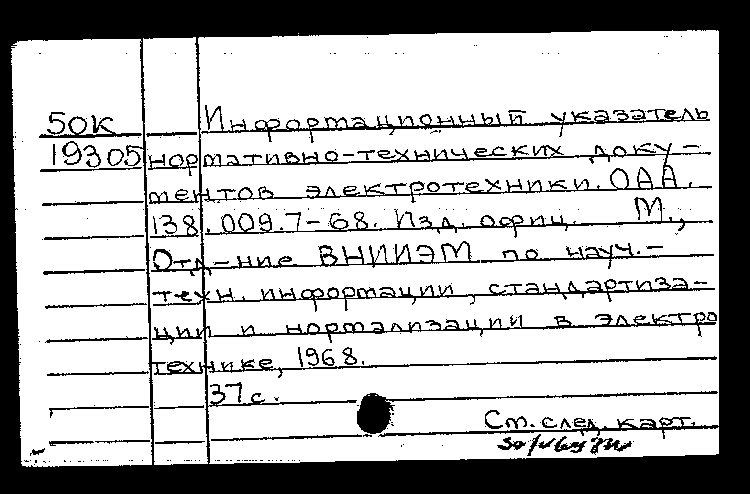 50К Информационный указатель
19305 нормативно-технических доку-
ментов электротехники. ОАА.
138.009.7-68. Изд. офиц. М.,
Отд-ние ВНИИЭМ по науч.-
техн. информации, стандартиза-
ции и нормализации в электро
технике, 1968.
37с.
См. след. карт.